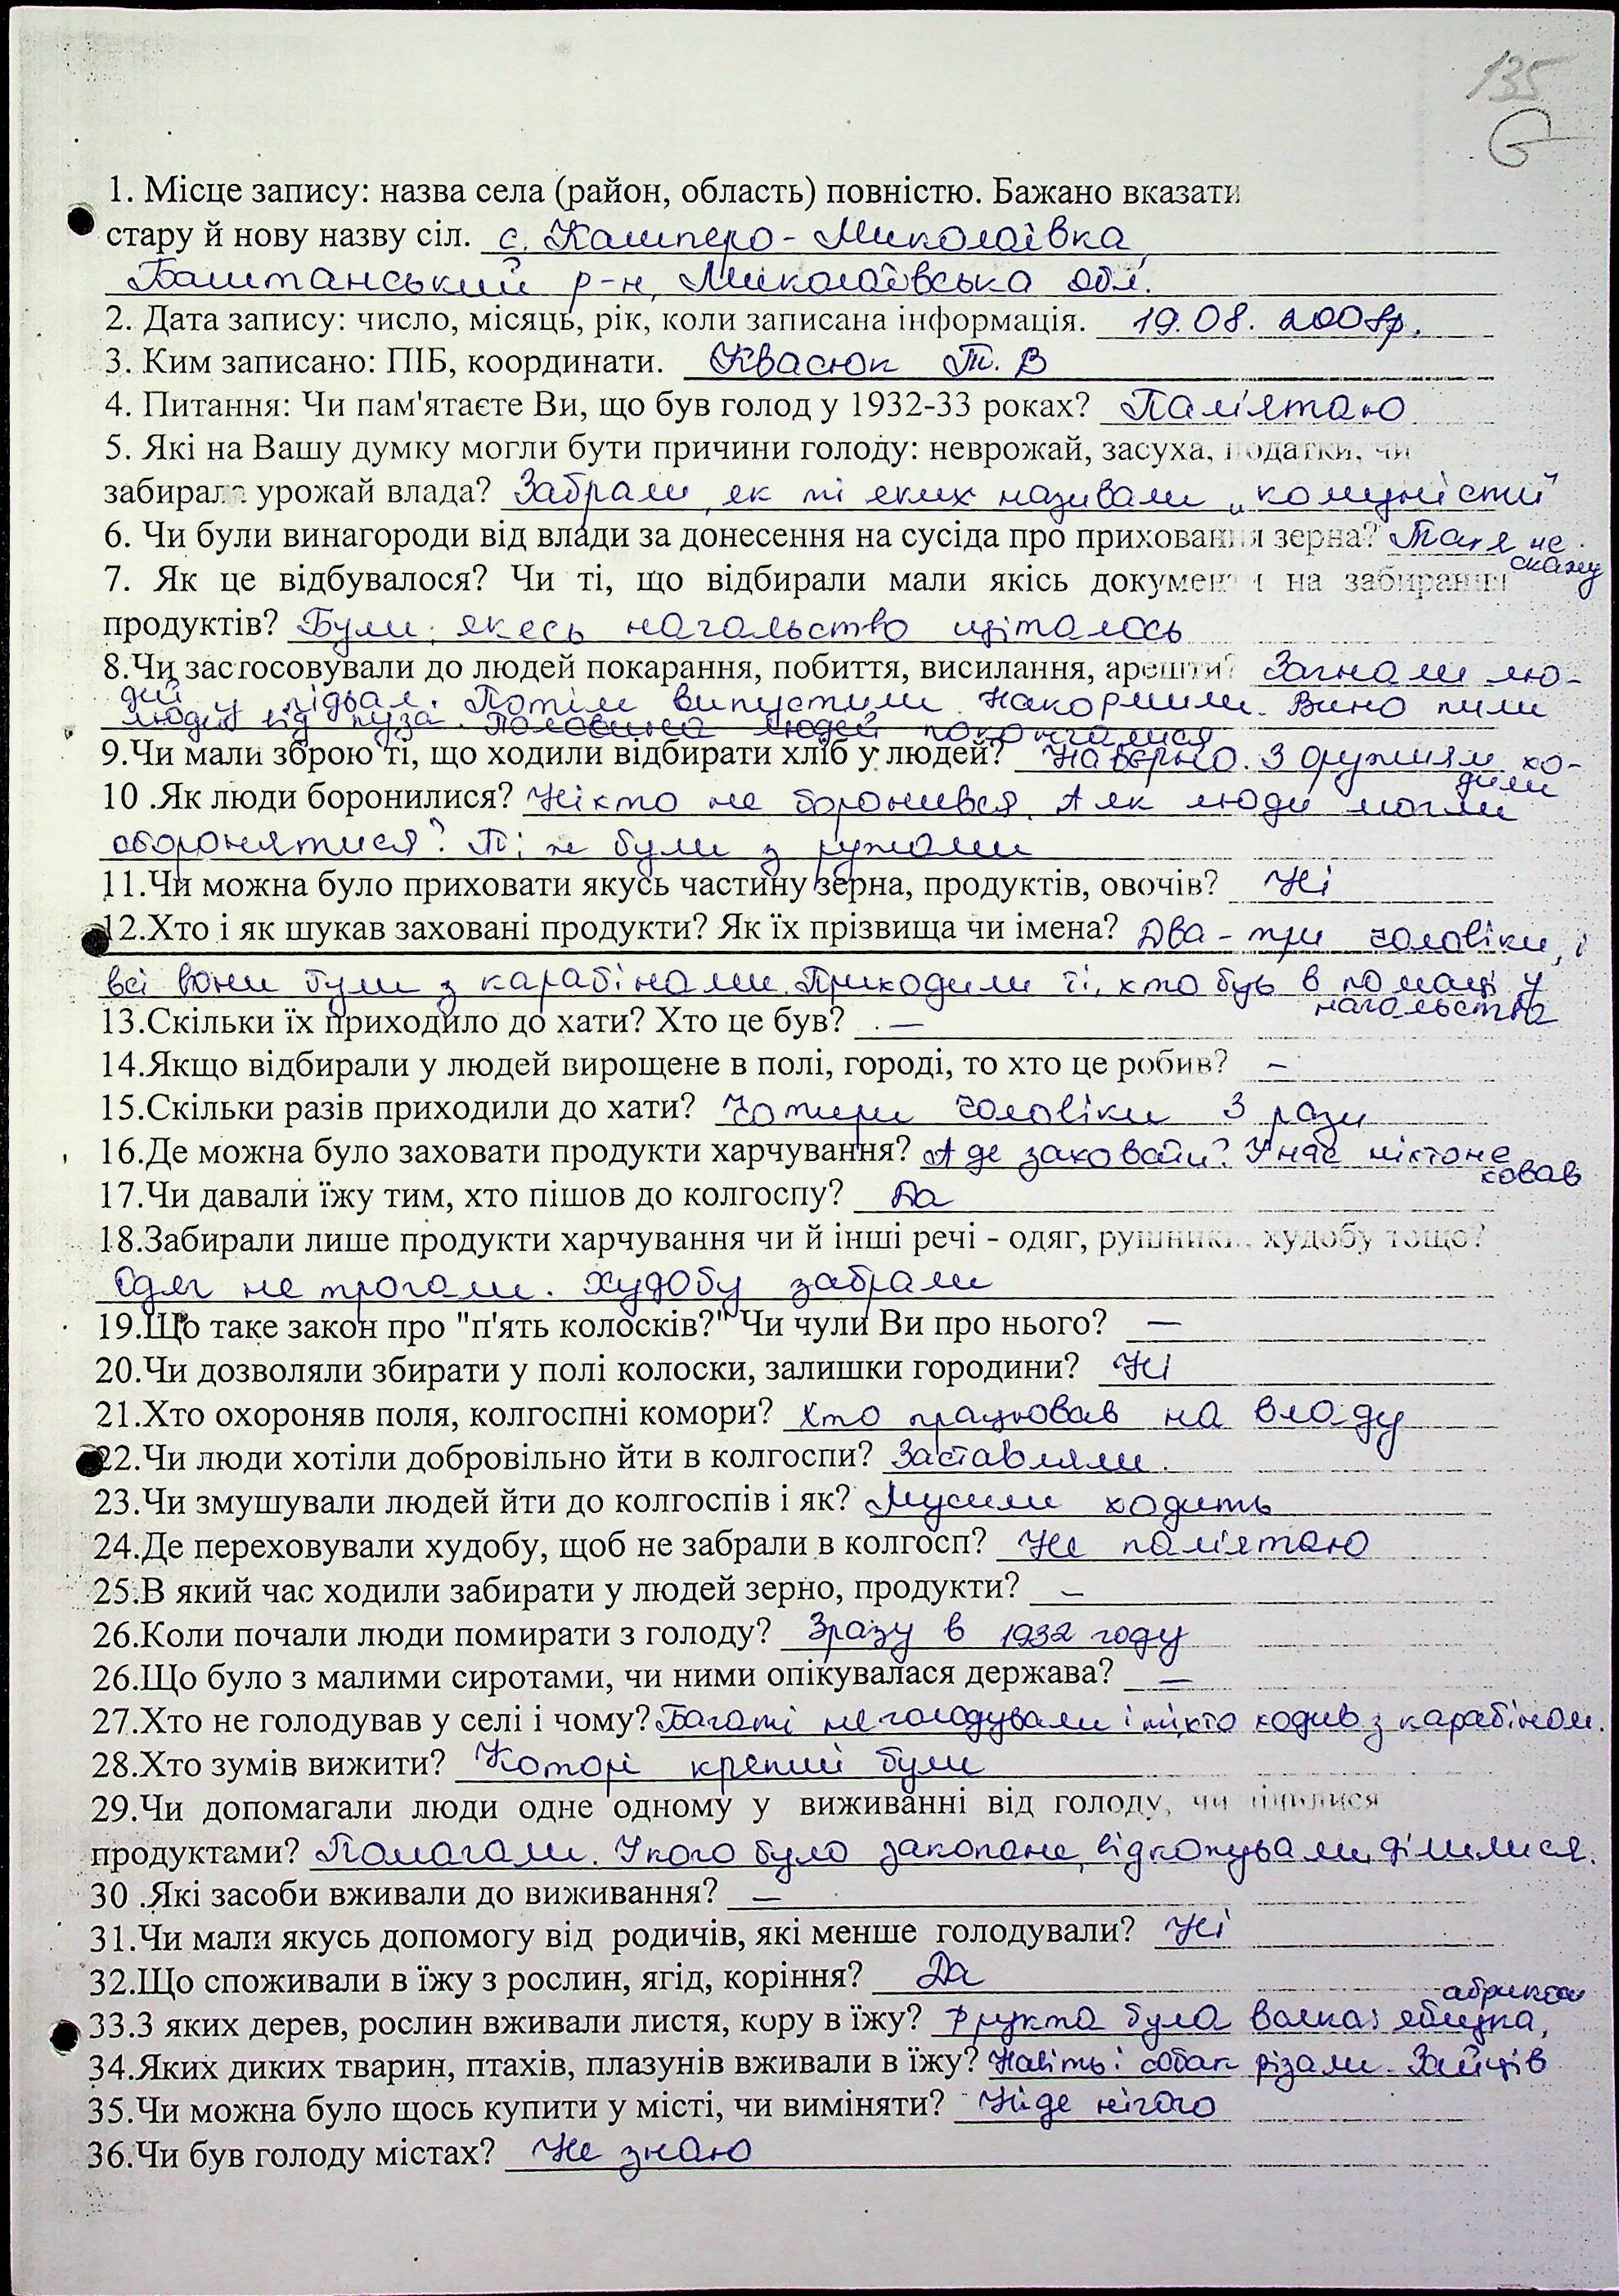 135
1. Місце запису: назва села (район, область) повністю. Бажано вказати
стару й нову назву сіл. с. Кашперо-Миколаївка,
Баштанський р-н, Миколаївська обл.
2. Дата запису: число, місяць, рік, коли записана інформація. 19.08.2008р.
3. Ким записано: ПІБ, координати. Квасюк Т. В
4. Питання: Чи пам'ятаєте Ви, що був голод у 1932-33 роках? Пам'ятаю
5. Які на Вашу думку могли бути причини голоду: неврожай, засуха, податки, чи
забирала урожай влада? Забрали, як ті яких називали „комуністи"
6. Чи були винагороди від влади за донесення на сусіда про приховання зерна? не
скажу
7. Як це відбувалося? Чи ті, що відбирали мали якісь документи на забирання
продуктів? Були, якесь начальство щіталось
8.Чи застосовували до людей покарання, побиття, висилання, арешти? Загнали лю-
дей у підвал. Потім випустили. Накормили. Вино пили
людей від пуза. Половина людей
9.Чи мали зброю ті, що ходили відбирати хліб у людей? Наверно. З оружиям хо-
дили
10 .Як люди боронилися? Ніхто не боронився. А як люди могли
оборонятися? Ті ж були з ружами
11.Чи можна було приховати якусь частину зерна, продуктів, овочів? Ні
12.Хто і як шукав заховані продукти? Як їх прізвища чи імена? Два-три чоловіки, і
всі вони були з карабінами. Приходили ті, хто був в помощі у
начальства
13.Скільки їх приходило до хати? Хто це був? —
14.Якщо відбирали у людей вирощене в полі, городі, то хто це робив? —
15.Скільки разів приходили до хати? Чотири чоловіки 3 рази
16.Де можна було заховати продукти харчування? А де заховати? У нас ніхто не
ховав
17.Чи давали їжу тим, хто пішов до колгоспу? Да
18.Забирали лише продукти харчування чи й інші речі - одяг, рушники, худобу тощо?
Одяг не трогали. Худобу забрали
19.Що таке закон про "п'ять колосків?" Чи чули Ви про нього? —
20.Чи дозволяли збирати у полі колоски, залишки городини? Ні
21.Хто охороняв поля, колгоспні комори? Хто працював на владу
22.Чи люди хотіли добровільно йти в колгоспи? Заставляли.
23.Чи змушували людей йти до колгоспів і як? Мусили ходить
24.Де переховували худобу, щоб не забрали в колгосп? Не пам'ятаю
25.В який час ходили забирати у людей зерно, продукти? —
26.Коли почали люди помирати з голоду? Зразу в 1932 году
26.Що було з малими сиротами, чи ними опікувалася держава? —
27.Хто не голодував у селі і чому? Багаті не голодували і ті хто ходив з карабіном.
28.Хто зумів вижити? Которі крепші були
29.Чи допомагали люди одне одному у виживанні від голоду, чи ділилися
продуктами? Помагали. У кого було закопане, відкопували, ділилися.
30 .Які засоби вживали до виживання? —
31.Чи мали якусь допомогу від родичів, які менше голодували? Ні
32.Що споживали в їжу з рослин, ягід, коріння? Да
абрикоси
33.З яких дерев, рослин вживали листя, кору в їжу? Фрукта була всяка: яблука,
34.Яких диких тварин, птахів, плазунів вживали в їжу? Навіть і собак різали. Зайців
35.Чи можна було щось купити у місті, чи виміняти? Ніде нічого
36.Чи був голоду містах? Не знаю